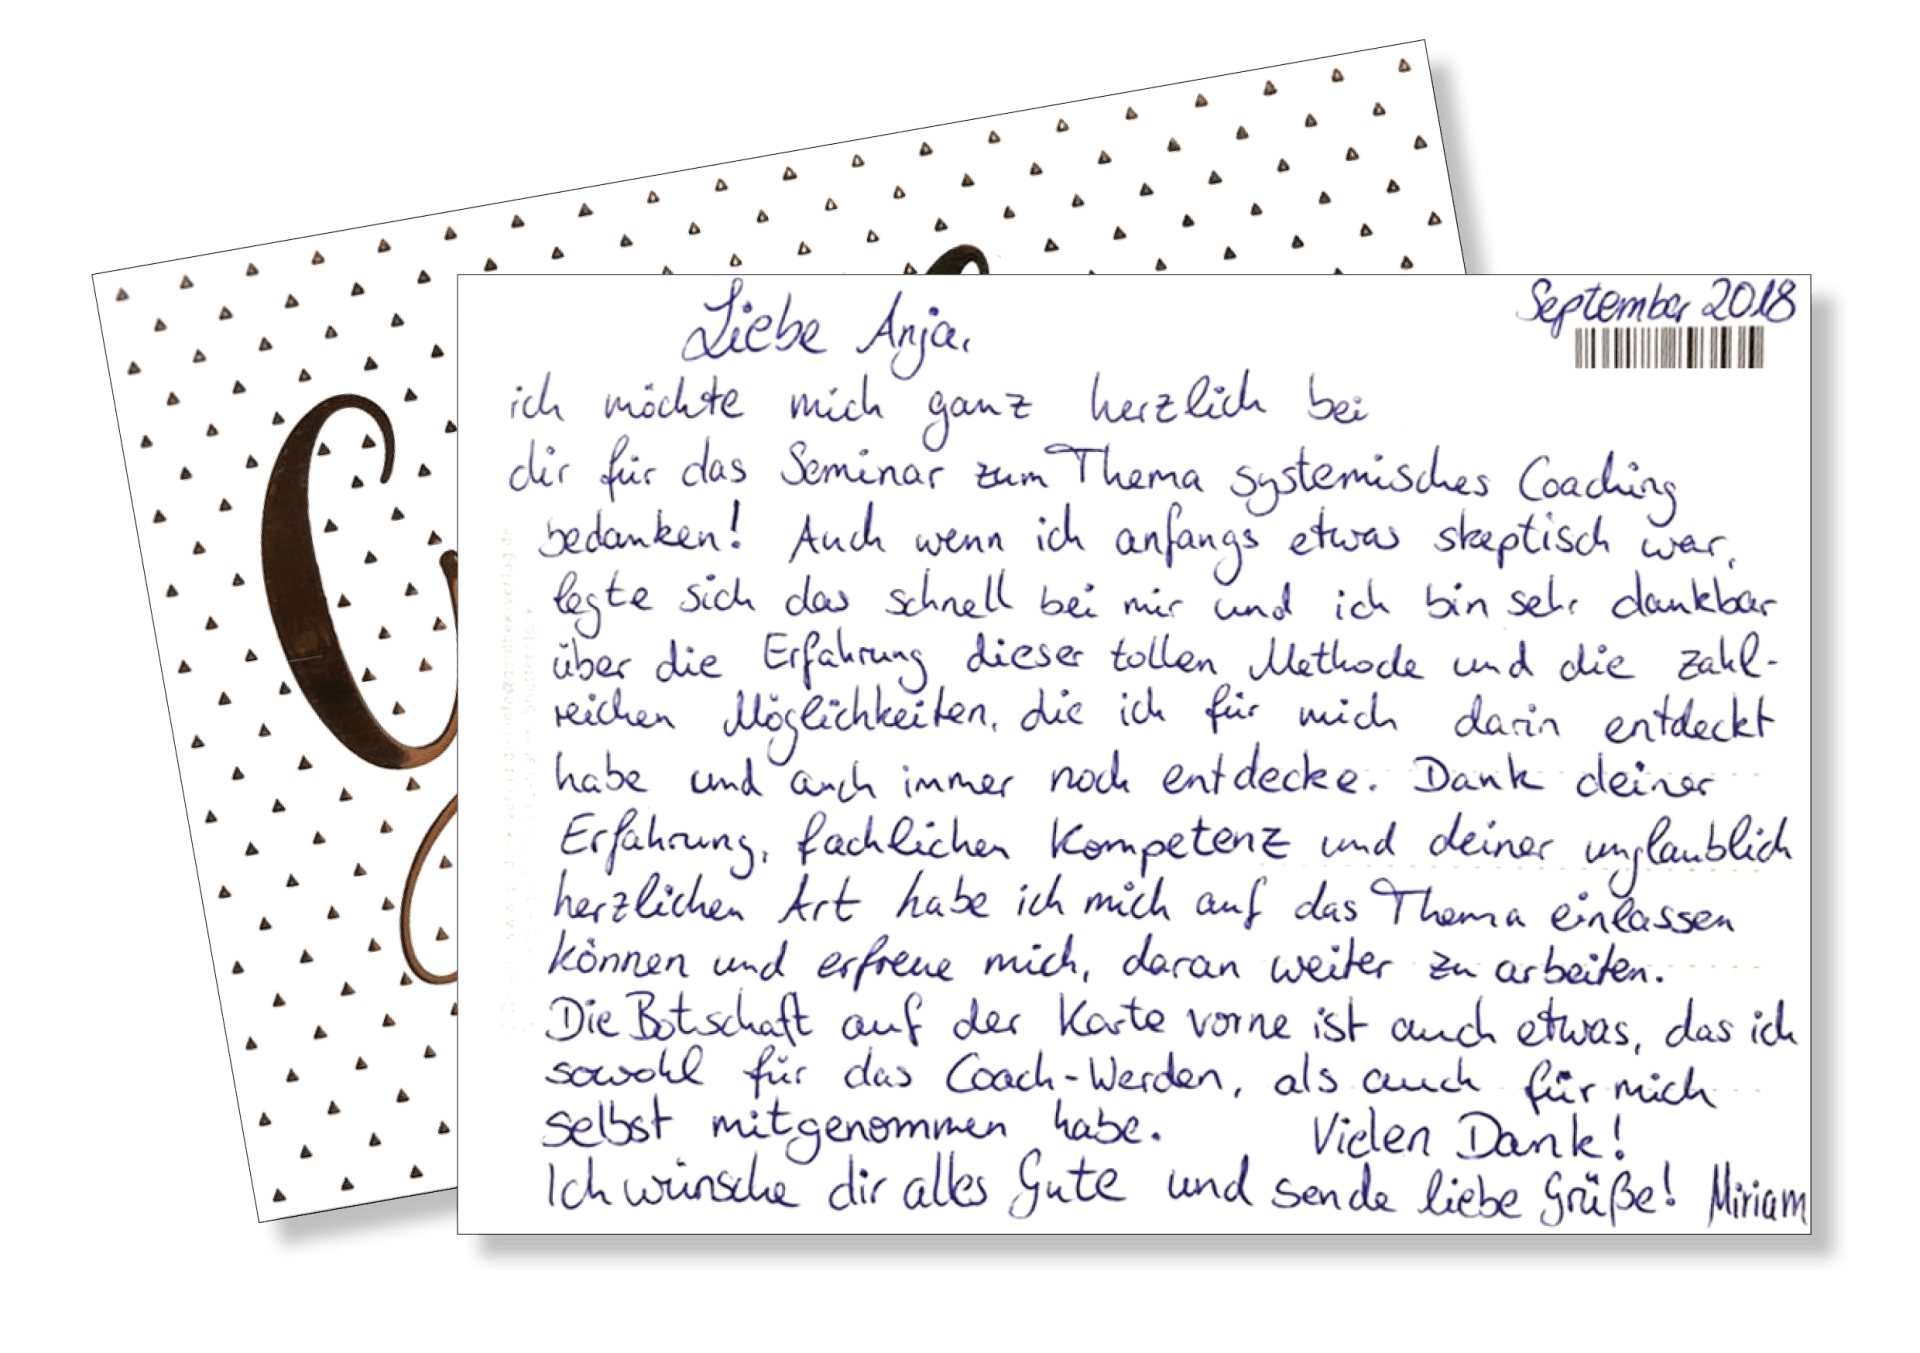 September 2018
Liebe Anja,
ich möchte mich ganz herzlich bei
dir für das Seminar zum Thema systemisches Coaching
bedanken! Auch wenn ich anfangs etwas skeptisch war,
legte sich das schnell bei mir und ich bin sehr dankbar
über die Erfahrung dieser tollen Methode und die zahl-
reichen Möglichkeiten, die ich für mich darin entdeckt
habe und auch immer noch entdecke. Dank deiner
Erfahrung, fachlichen Kompetenz und deiner unglaublich
herzlichen Art habe ich mich auf das Thema einlassen
können und erfreue mich, daran weiter zu arbeiten.
Die Botschaft auf der Karte vorne ist auch etwas, das ich
sowohl für das Coach-Werden, als auch für mich
selbst mitgenommen habe. Vielen Dank!
Ich wünsche dir alles Gute und sende liebe Grüße! Miriam